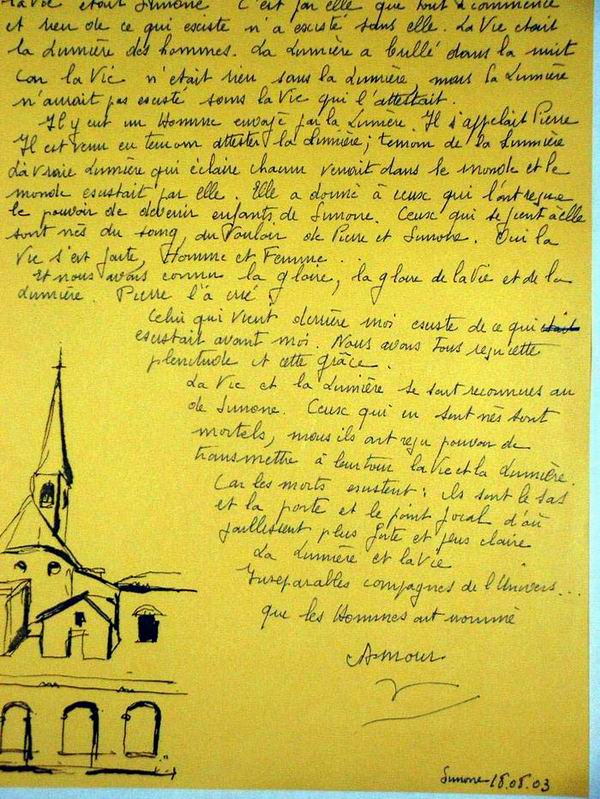 la Vie était Simone C'est par elle que tout a commencé
et rien de ce qui existe n'a existé sans elle. La Vie était
la Lumière des hommes. La Lumière a brillé dans la nuit
Car la Vie n'était rien sans la Lumière, mais la Lumière
n'aurait pas existé sans la Vie qui l'attestait.
Il y eut un Homme envoyé par la Lumière. Il s'appelait Pierre
Il est venu en témoin attester la Lumière ; témoin de la Lumière
La vraie Lumière qui éclaire chacun venait dans le monde et le
monde existait par elle. Elle a donné à ceux qui l'ont reçue
le pouvoir de devenir enfants de Simone. Ceux qui se fient à elle
sont nés du sang, du Vouloir de Pierre et Simone. Oui la
Vie s'est faite, Homme et Femme...
Et nous avons connu la gloire, la gloire de la Vie et de la
Lumière. Pierre l'a crié :
Celui qui vient derrière moi existe de ce qui
existait avant moi. Nous avons tous reçu cette
plénitude et cette grâce.
La Vie et la Lumière se sont reconnues au
de Simone. Ceux qui en sont nés sont
mortels, mais ils ont reçu pouvoir de
transmettre à leur tour la Vie et la Lumière.
Car les morts existent : ils sont le sas
et la porte et le point focal d'où
jaillissent plus forte et plus claire
La Lumière et la Vie
Inséparables compagnes de l'Univers...
que les Hommes ont nommé
Amour
Simone 18.08.03